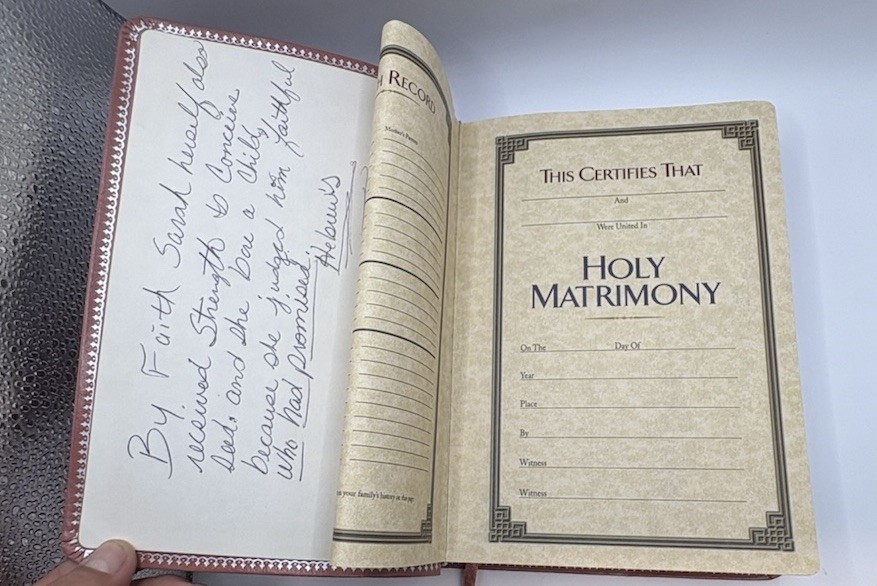 By Faith Sarah herself also
received Strength to Conceive
seed, and she bore a child,
because she judged him faithful
who had promised.
Hebrew's
RECORD
Mother's Family
your family's history in the
THIS CERTIFIES THAT
And
Were United In
HOLY
MATRIMONY
On The Day Of
Year
Place
By
Witness
Witness